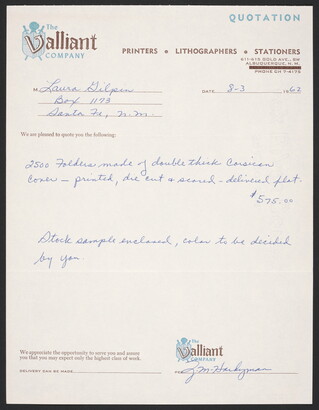 QUOTATION
The
Valliant
COMPANY
PRINTERS • LITHOGRAPHERS • STATIONERS
611-615 GOLD AVE., SW
ALBUQUERQUE, N. M.
PHONE CH 7-4175
M Laura Gilpin DATE 8-3 1962
Box 1173
Santa Fe, N.M.
We are pleased to quote you the following:
2500 Folders made of double thick Corsican
Cover - printed, die cut & scored - delivered flat.
$575.00
Stock sample enclosed, color to be decided
by you.
We appreciate the opportunity to serve you and assure
you that you may expect only the highest class of work.
The
Valliant
COMPANY
DELIVERY CAN BE MADE
PER